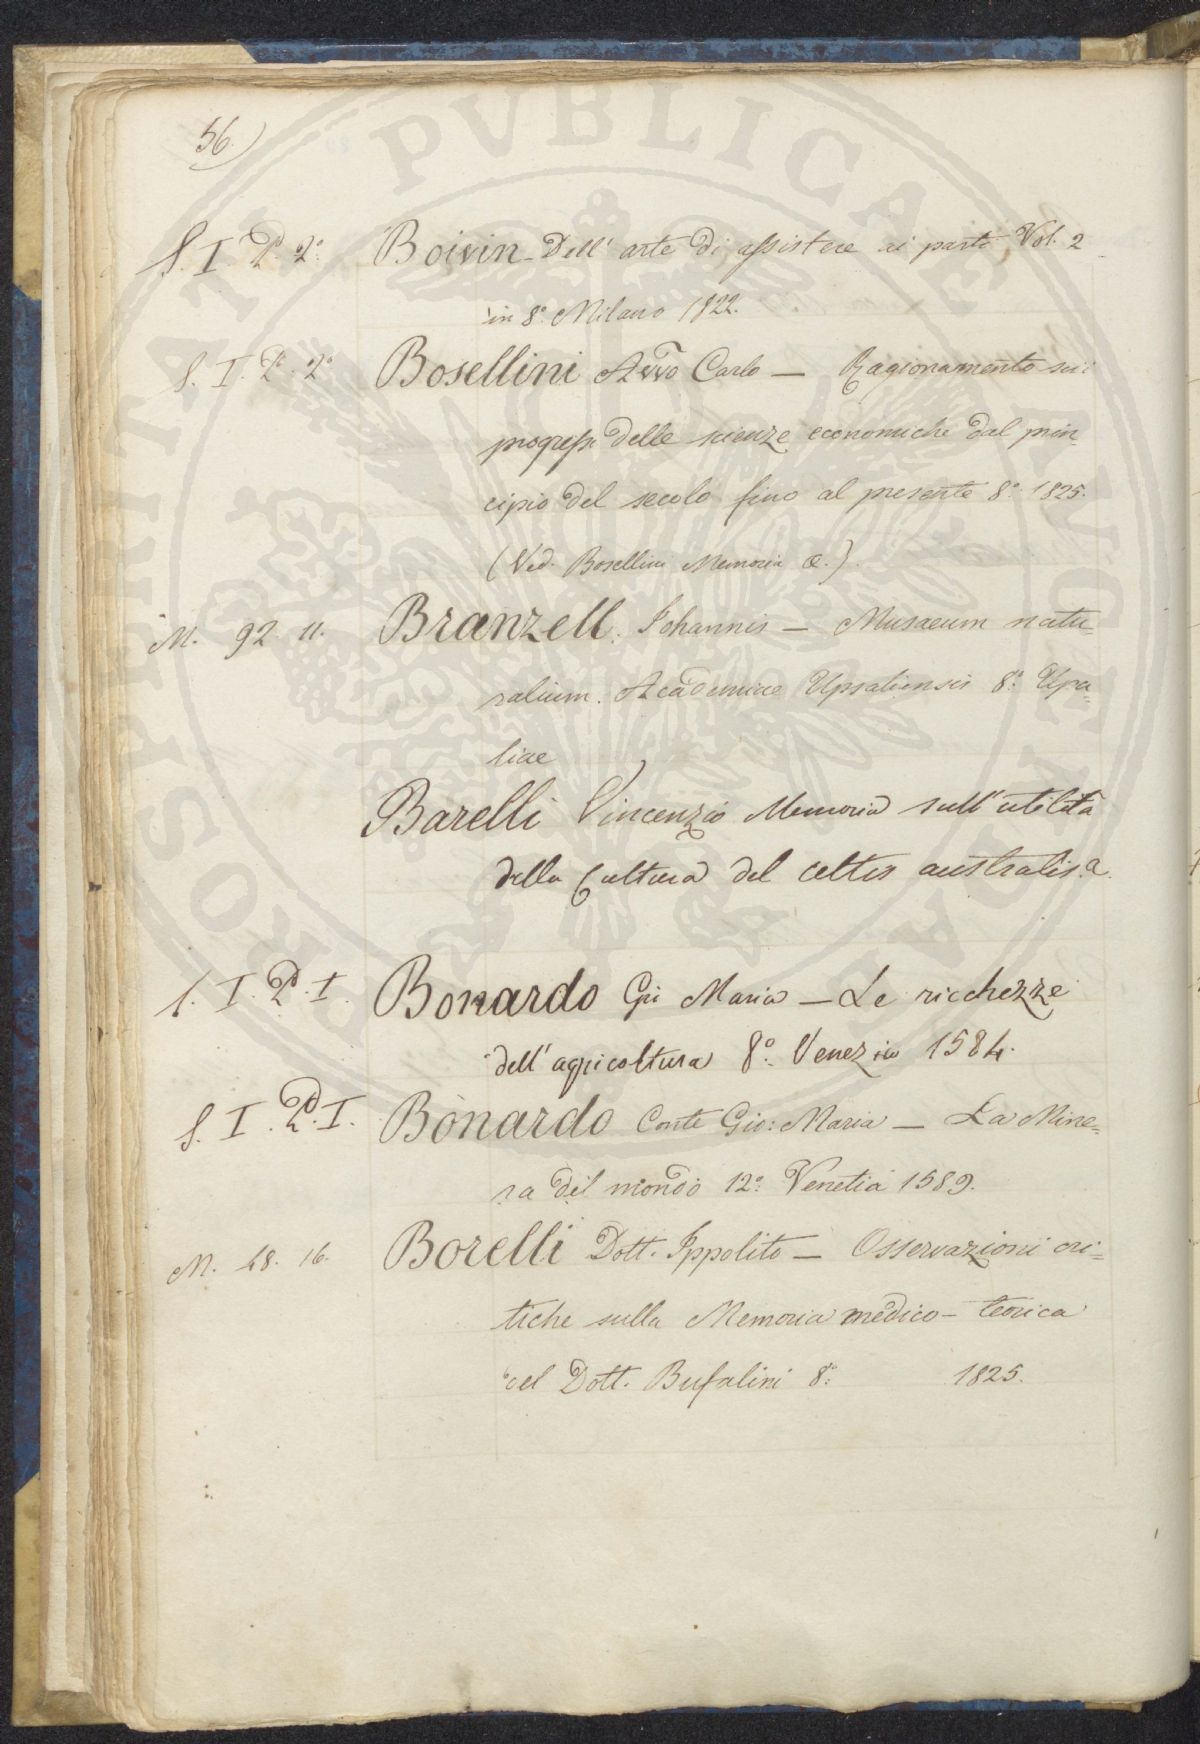 56.)
S. I. P. 2.° Boivin - Dell' arte di assistere ai parti, Vol. 2
in 8.° Milano 1822.
S. I. P. 2° Bosellini Avvo Carlo — Ragionamento sui
progressi delle scienze economiche dal prin-
cipio del secolo fino al presente 8.° 1825.
(Ved. Bosellini Memoria &.)
M. 92. 11. Branzell. Iohannis — Musaeum natu=
ralium. Academiae Upsaliensis 8.° Upa=
liae
Barelli Vincenzio Memoria sull' utilità
della Cultura del celtis australis.
S. I. P. I. Bonardo Gri Maria — Le ricchezze
dell' agricoltura 8.° Venezia 1584.
S. I. P. I. Bonardo Conte Gio: Maria — La Mine=
ra del mondo 12.° Venetia 1589.
M. 48. 16. Borelli Dott. Ippolito — Osservazioni cri=
tiche sulla Memoria medico-teorica
del Dott. Bufalini 8.° 1825.
PROSPERITATI PVBLICAE AVGENDAE